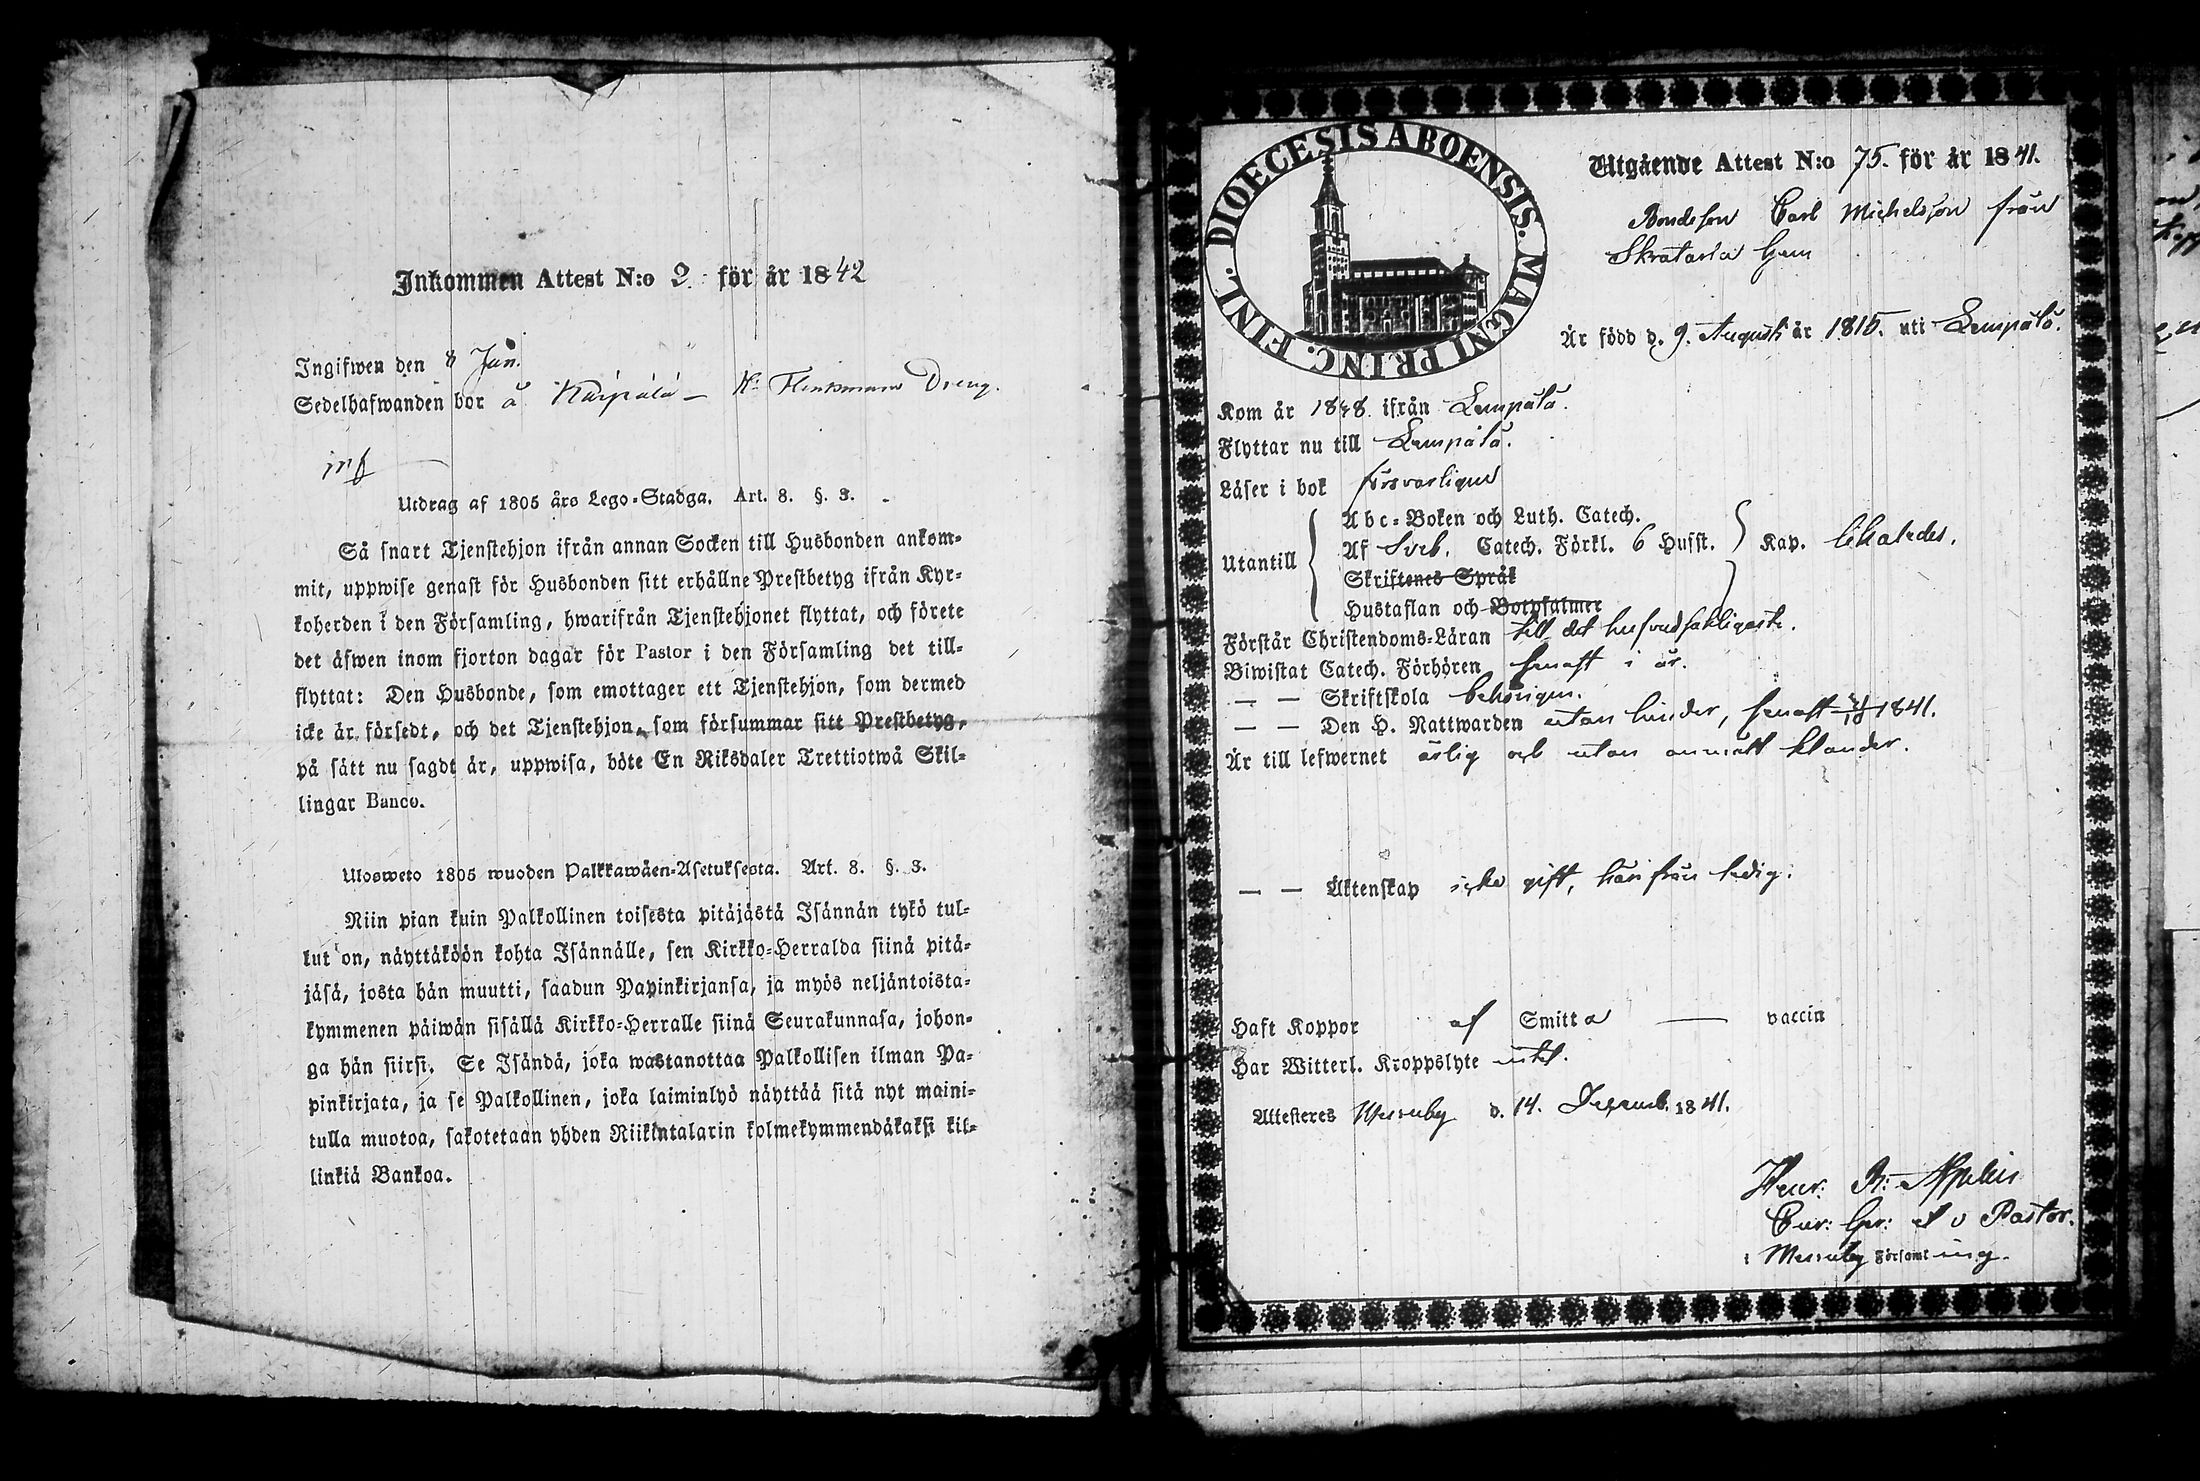 Inkommen Attest N:o 2. för år 1842
Ingifwen den 8 Jan.
Sedelhafwanden bor å Kärpälä – Dreng.
Utdrag af 1805 års Lego-Stadga. Art. 8. §. 3.
Så snart Tjenstehjon ifrån annan Socken till Husbonden ankom-
mit, uppwise genast för Husbonden sitt erhållne Prestbetyg ifrån Kyr-
koherden i den Församling, hwarifrån Tjenstehjonet flyttat, och förete
det äfwen inom fjorton dagar för Pastor i den Församling det till-
flyttat: Den Husbonde, som emottager ett Tjenstehjon, som dermed
icke är försedt, och det Tjenstehjon, som försummar sitt Prestbetyg,
på sätt nu sagdt är, uppwisa, böte En Riksdaler Trettiotwå Skil-
lingar Banco.
Ulosweto 1805 wuoden Palkkawäen-Asetuksesta. Art. 8. §. 3.
Niin pian kuin Palkollinen toisesta pitäjästä Isännän tykö tul-
lut on, näyttäköön kohta Isännälle, sen Kirkko-Herralda siinä pitä-
jäsä, josta hän muutti, saadun Papinkirjansa, ja myös neljäntoista-
kymmenen päiwän sisällä Kirkko-Herralle siinä Seurakunnasa, johon-
ga hän siirsi. Se Isändä, joka wastanottaa Palkollisen ilman Pa-
pinkirjata, ja se Palkollinen, joka laiminlyö näyttää sitä nyt maini-
tulla muotoa, sakotetaan yhden Riikintalarin kolmekymmendäkaksi kil-
linkiä Bankoa.
DIOECESIS ABOENSIS. MAGNI PRINC. FINL.
Utgående Attest N:o 75. för år 1841.
Bondeson Carl Michelsson från
Är född d. 9. Augusti år 1815. uti Lempälä.
Kom år ifrån Lempälä.
Flyttar nu till Lempälä.
Läser i bok försvarligen
Abc-Boken och Luth. Catech.
Utantill Af Sveb. Catech. Förkl. 6 Husst. Kap. likaledes.
Skriftenes Språk
Hustaflan och Botpsalmer
Förstår Christendoms-Läran till det hufvudsakligaste.
Biwistat Catech. Förhören senast i år.
— — Skriftskola behörigen.
— — Den H. Nattwarden utan hinder, senast 1841.
Är till lefwernet ärlig och utan anmält klander.
— — Äktenskap icke gift, härifrån ledig.
Haft Koppor af Smitta — vaccin
Har Witterl. Kroppslyte intet.
Attesteras Messuby d. 14. Decemb. 1841.
Henr. R: Appelin
Cur: Ger: et v Pastor.
i Messuby Församling.